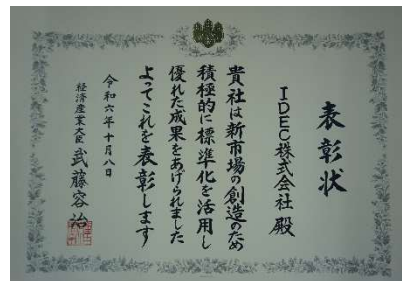 表彰状
IDEC株式会社 殿
貴社は新市場の創造のため
積極的に標準化を活用し
優れた成果をあげられました
よってこれを表彰します
令和六年十月八日
経済産業大臣 武藤容治